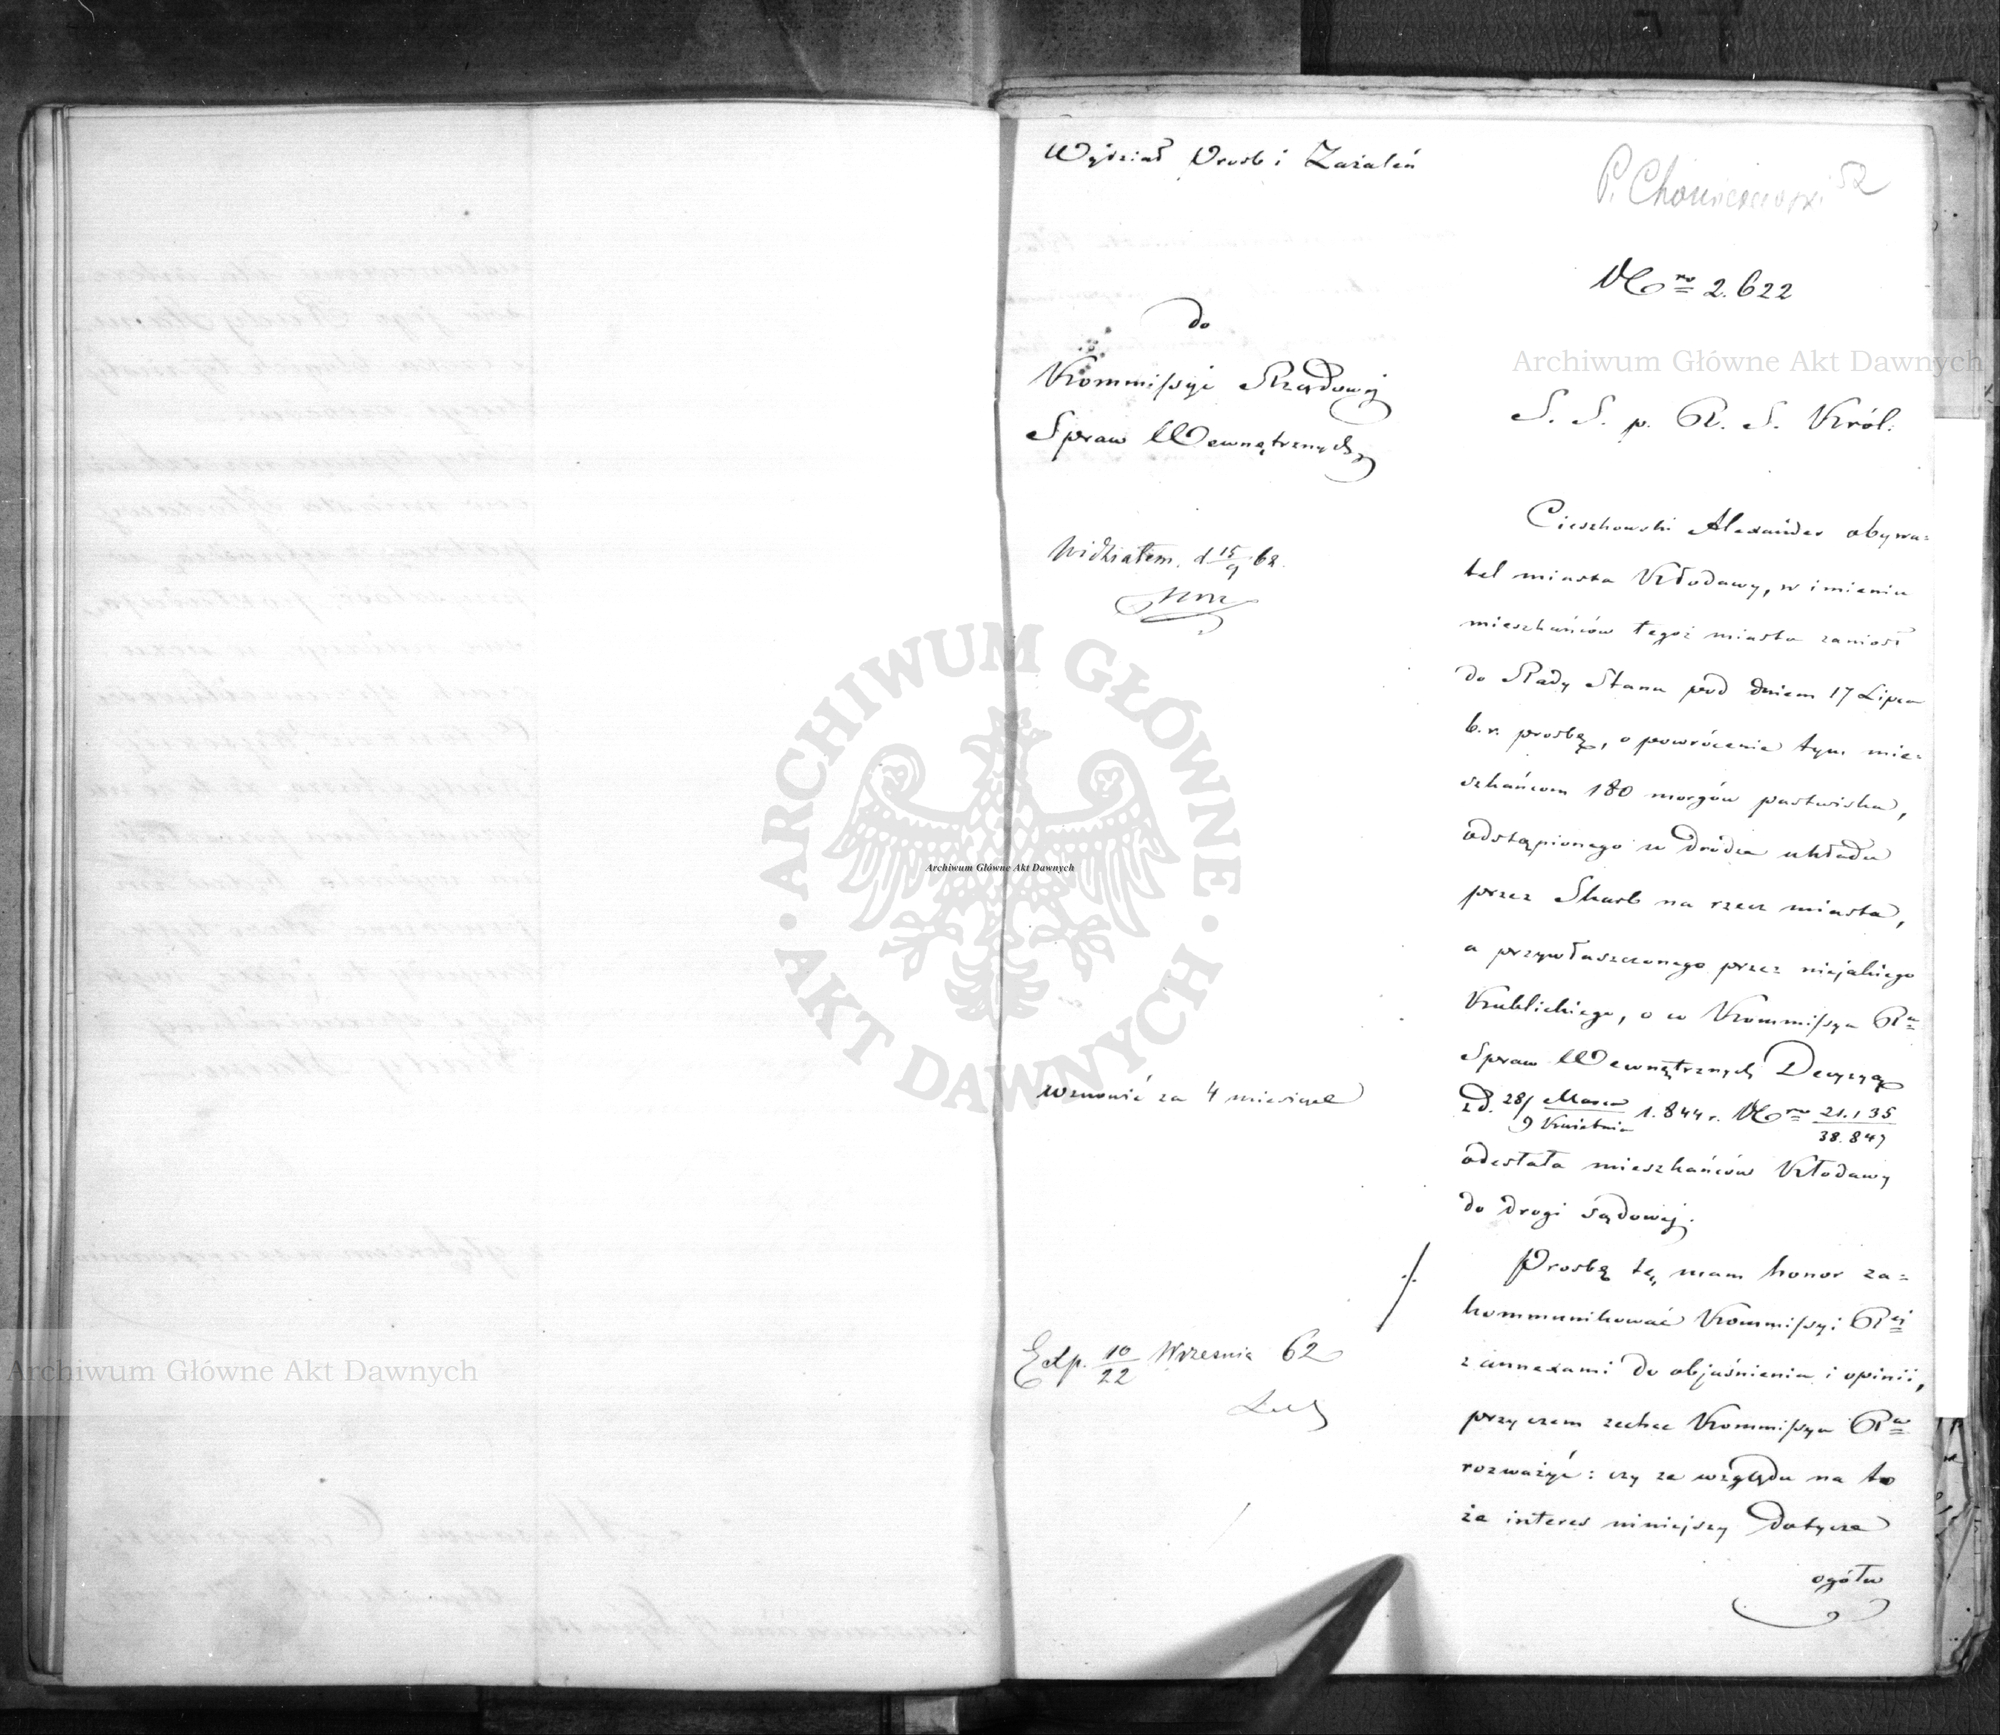 Wydział Prośb i Zażaleń
52
Nro 2.622
do
Kommissyi Rządowej
Spraw Wewnętrznych
S. S. p. R. S. Król.
Widziałem d 15/9 62.
Cieszkowski Alexander obywa=
tel miasta Kłodawy, w imieniu
mieszkańców tegoż miasta zaniósł
do Rady Stanu pod dniem 17 Lipca
b.r. prosbę, o powrócenie tym mie=
szkańcom 180 morgów pastwiska,
odstąpionego w drodze układu
przez Skarb na rzecz miasta,
a przywłaszczonego przez niejakiego
Kublickiego, o co Kommissya Ra
Spraw Wewnętrznych Decyzyą
z d. 28/9 Marca/Kwietnia 1.844 r. Nro 21.135/38.847
odesłała mieszkańców Kłodawy
do drogi sądowej.
Wznowić za 4 miesiące
Prosbę tę, mam honor za=
kommunikować Kommissyi Rej
z annexami do objaśnienia i opinii,
przyczem zechce Kommissya Ra
rozważyć: czy ze względu na to
że interes niniejszy dotycze
ogółu
Exp. 10/22 Września 62
Archiwum Główne Akt Dawnych
Archiwum Główne Akt Dawnych
Archiwum Główne Akt Dawnych
ARCHIWUM GŁÓWNE · AKT DAWNYCH ·